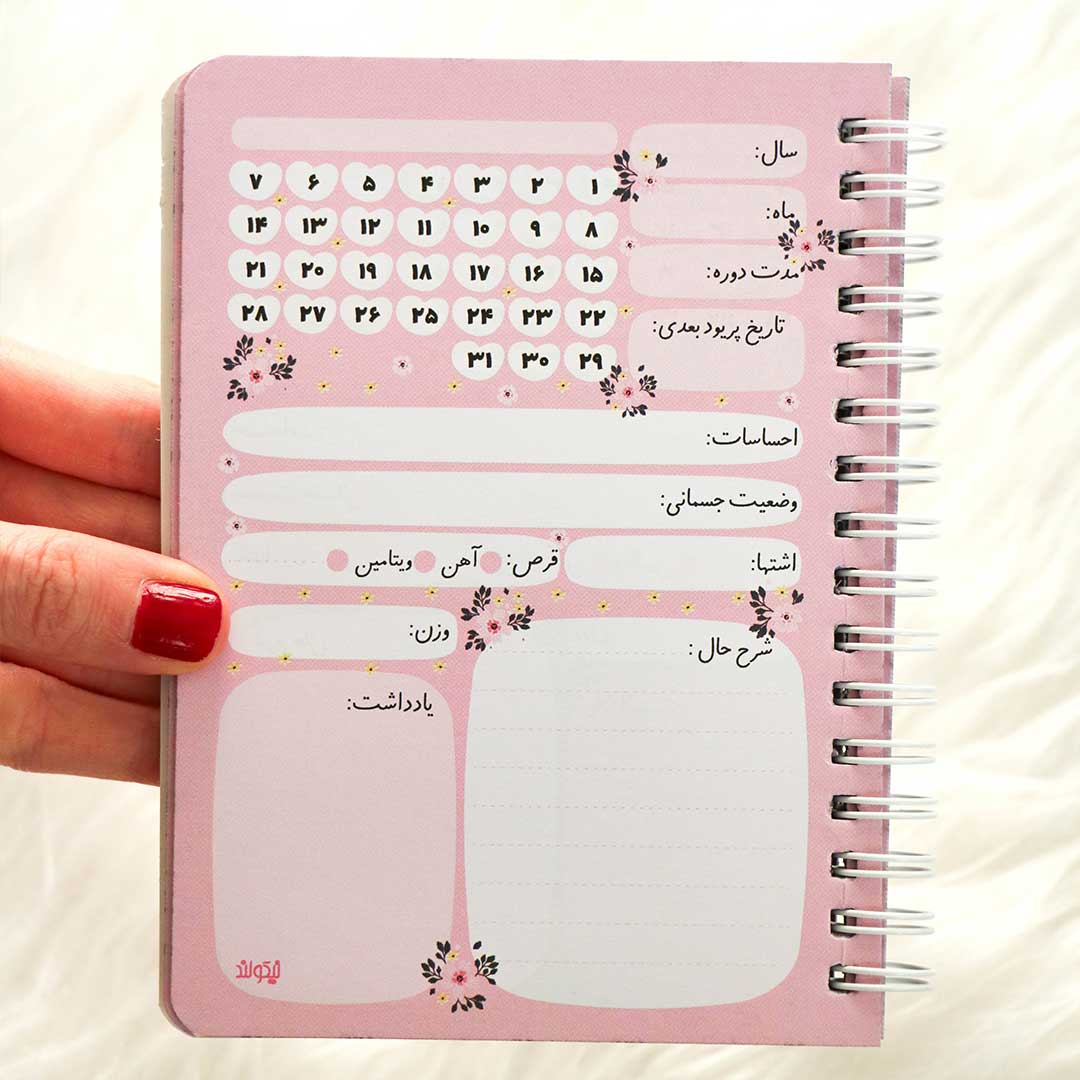 سال:
ماه:
مدت دوره:
تاریخ پریود بعدی:
۱ ۲ ۳ ۴ ۵ ۶ ۷
۸ ۹ ۱۰ ۱۱ ۱۲ ۱۳ ۱۴
۱۵ ۱۶ ۱۷ ۱۸ ۱۹ ۲۰ ۲۱
۲۲ ۲۳ ۲۴ ۲۵ ۲۶ ۲۷ ۲۸
۲۹ ۳۰ ۳۱
احساسات:
وضعیت جسمانی:
اشتها:
قرص: آهن ویتامین
وزن:
شرح حال :
یادداشت:
نیکولند